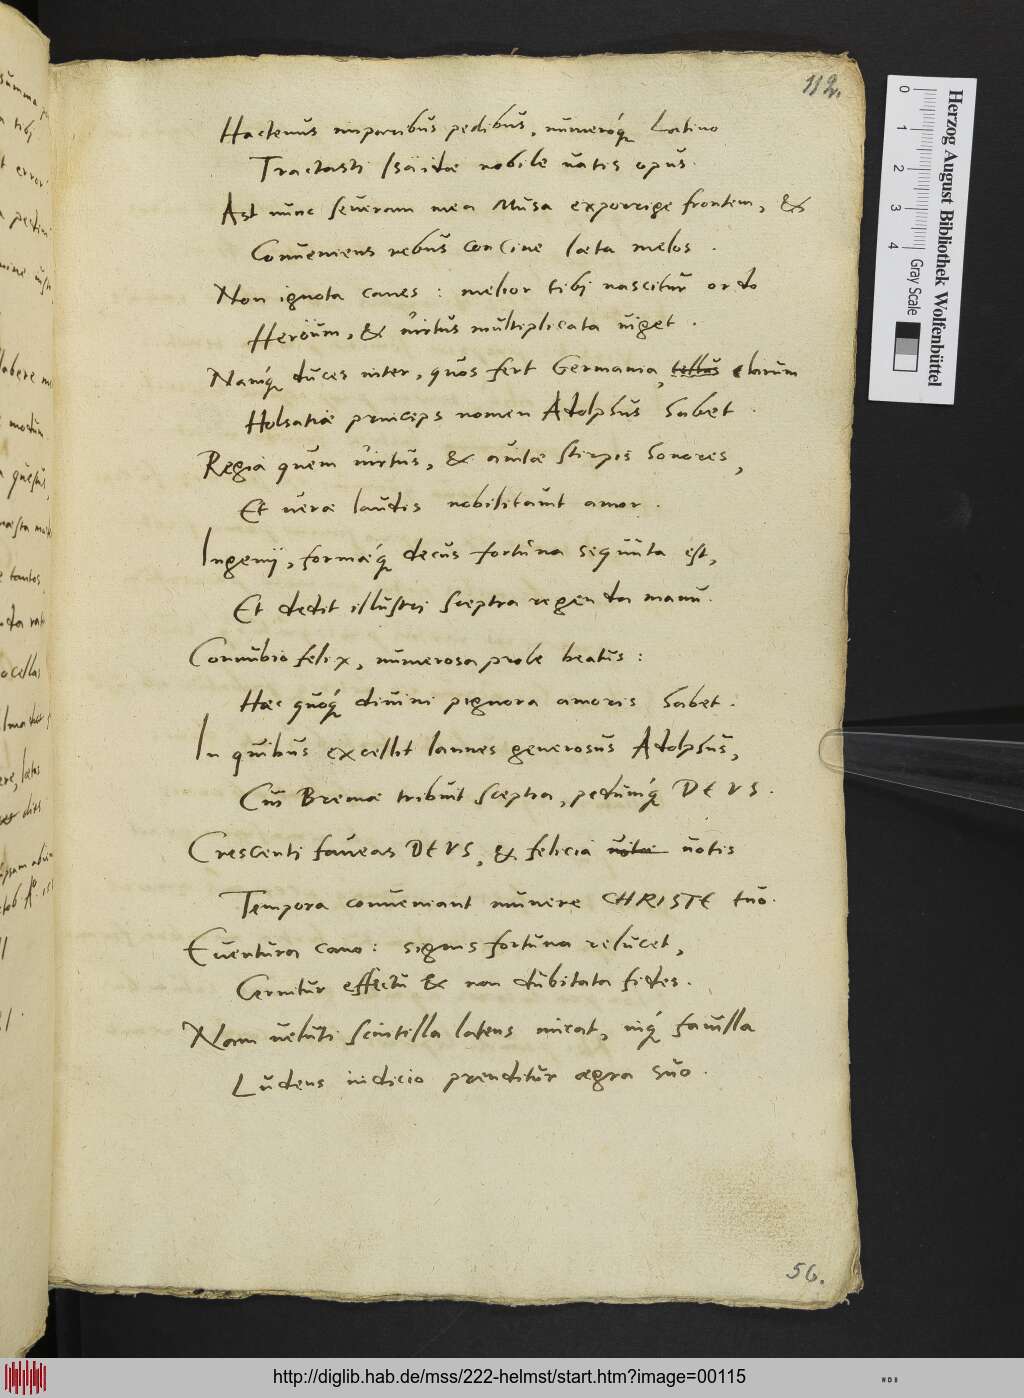 112.
Hactenus imparibus pedibus, numeróq́ Latino
Tractasti Isäidæ nobile uatis opus.
Ast nunc seueram mea Musa exporrige frontem, &
Conueniens rebus concine læta melos.
Non ignota canes: melior tibj nascitur ordo
Heroüm, & uirtus multiplicata uiget.
Namq́ duces inter, quos fert Germania, tellus clarum
Holsatiæ princeps nomen Adolphus habet.
Regia quem uirtus, & auitæ stirpis honores,
Et ueræ laudis nobilitauit amor.
Ingenij, formæq́ decus fortuna sequuta est,
Et dedit illustrj sceptra regenda manu.
Connubio felix, numerosa prole beatus:
Hæc quoq́ diuini pignora amoris habet.
In quibus excellit Iannes generosus Adolphus,
Cui Bremæ tribuit sceptra, pedumq́ DEVS.
Crescenti faueas DEVS, & felicia uitæ uotis
Tempora conueniant munere CHRISTE tuo.
Euentura cano: signis fortuna relucet,
Cernitur effectu & non dubitata fides.
Nam ueluti scintilla latens micat, inq́ fauilla
Ludens indicio prenditur ægra suo.
56.
Herzog August Bibliothek Wolfenbüttel
0 1 2 3 4
Gray Scale
http://diglib.hab.de/mss/222-helmst/start.htm?image=00115